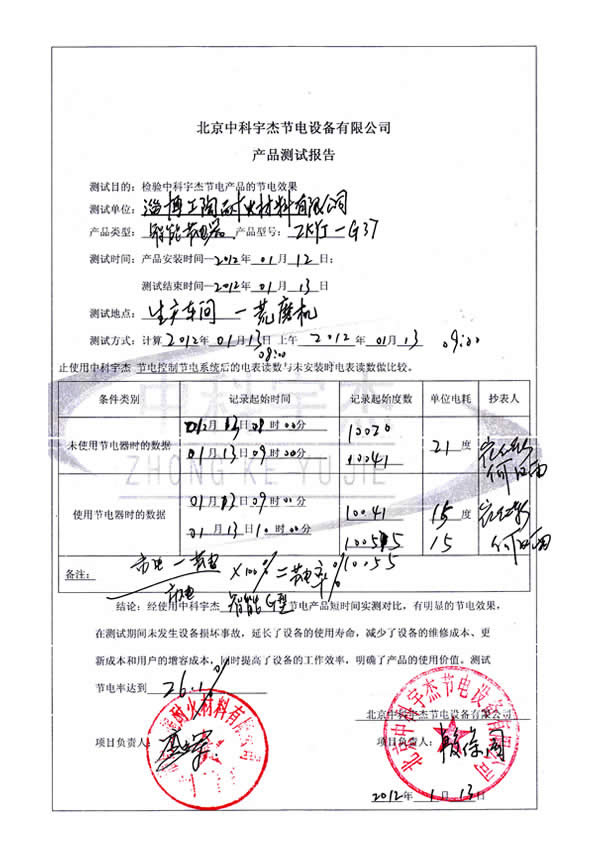 北京中科宇杰节电设备有限公司
产品测试报告
测试目的：检验中科宇杰节电产品的节电效果
测试单位：淄博工陶耐火材料有限公司
产品类型：智能节电器 产品型号：ZKYJ-G37
测试时间：产品安装时间—2012年01月12日；
测试结束时间—2012年01月13日
测试地点：生产车间 一荒磨机
测试方式：计算2012年01月13日上午 2012年01月13 09:00
08:00
止使用中科宇杰 节电控制节电系统后的电表读数与未安装时电表读数做比较。
条件类别 记录起始时间 记录起始度数 单位电耗 抄表人
01月13日08时00分 10020
未使用节电器时的数据 21度
01月13日09时00分 10041
中科宇杰
ZHONG KE YU JIE
01月13日09时00分 10041 15度
使用节电器时的数据
01月13日10时00分 15
10055
备注：市电－节电/市电 ×100%＝节电率%
结论：经使用中科宇杰 智能G型 节电产品短时间实测对比，有明显的节电效果，
在测试期间未发生设备损坏事故，延长了设备的使用寿命，减少了设备的维修成本、更
新成本和用户的增容成本，同时提高了设备的工作效率，明确了产品的使用价值。测试
节电率达到 26.1%
北京中科宇杰节电设备有限公司
项目负责人： 项目负责人：
耐火材料有限公司
北京中科宇杰节电设备有限公司
2012年1月13日